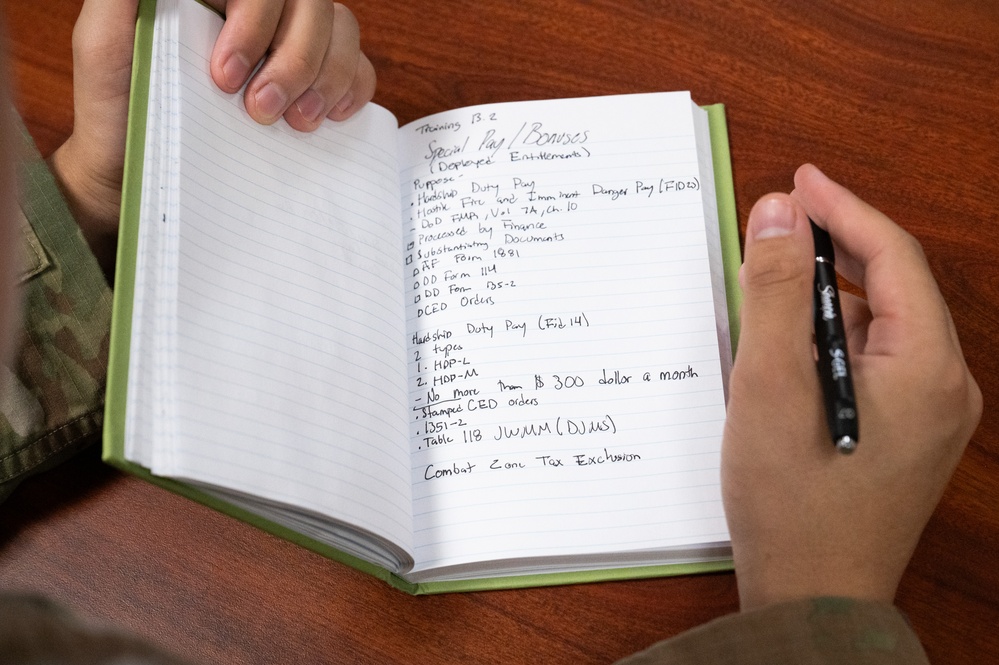 Training 13.2
Special Pay/Bonuses
(Deployed Entitlements)
Purpose-
• Hardship Duty Pay
• Hostile Fire and Imminent Danger Pay (FID23)
- DoD FMR, Vol 7A, Ch. 10
Processed by Finance
Substantiating Documents
AF Form 1881
DD Form 114
DD Form 135-2
CED Orders
Hardship Duty Pay (Fid 14)
2 types
1. HDP-L
2. HDP-M
- No more than $300 dollar a month
• Stamped CED orders
• 1351-2
• Table 118 JWMM (DJMS)
Combat Zone Tax Exclusion